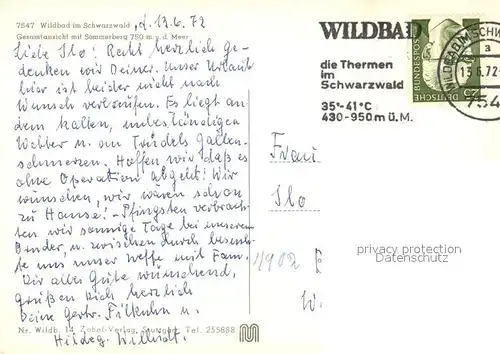 7547 Wildbad im Schwarzwald , d. 13.6.72
Gesamtansicht mit Sommerberg 750 m ü. d. Meer
Liebe Ilo! Recht herzlich ge-
denken wir Deiner. Unser Urlaub
hier ist leider nicht nach
Wunsch verlaufen. Es liegt an
dem kalten, unbeständigen
Wetter u. an Trudels Gallen-
schmerzen. Hoffen wir, daß es
ohne Operation abgeht! Wir
wünschen, wir wären schon
zu Hause! - Pfingsten verbrach-
ten wir sonnige Tage bei unserem
Bruder, u. zwischendurch besuch-
te uns unser Neffe mit Fam.
Dir alles Gute wünschend,
grüßen Dich herzlich
Deine Gertr. u.
Hildeg.
Nr. Wildb. 14 Zobel-Verlag, Stuttgart, Tel. 255888
WILDBAD
die Thermen
im
Schwarzwald
35-41°C
430-950m ü. M.
WILDBAD IM SCHW
a
13.6.72
754
DEUTSCHE BUNDESPOST
Frau
Ilo
1902
W
privacy protection
Datenschutz